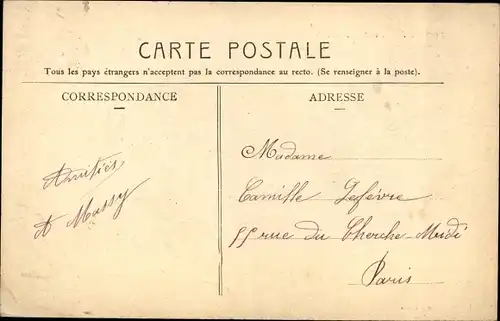 CARTE POSTALE
Tous les pays étrangers n'acceptent pas la correspondance au recto. (Se renseigner à la poste).
CORRESPONDANCE
ADRESSE
Amitiés
A Massy
Madame
Camille Lefévre
55 rue du Cherche-Midi
Paris